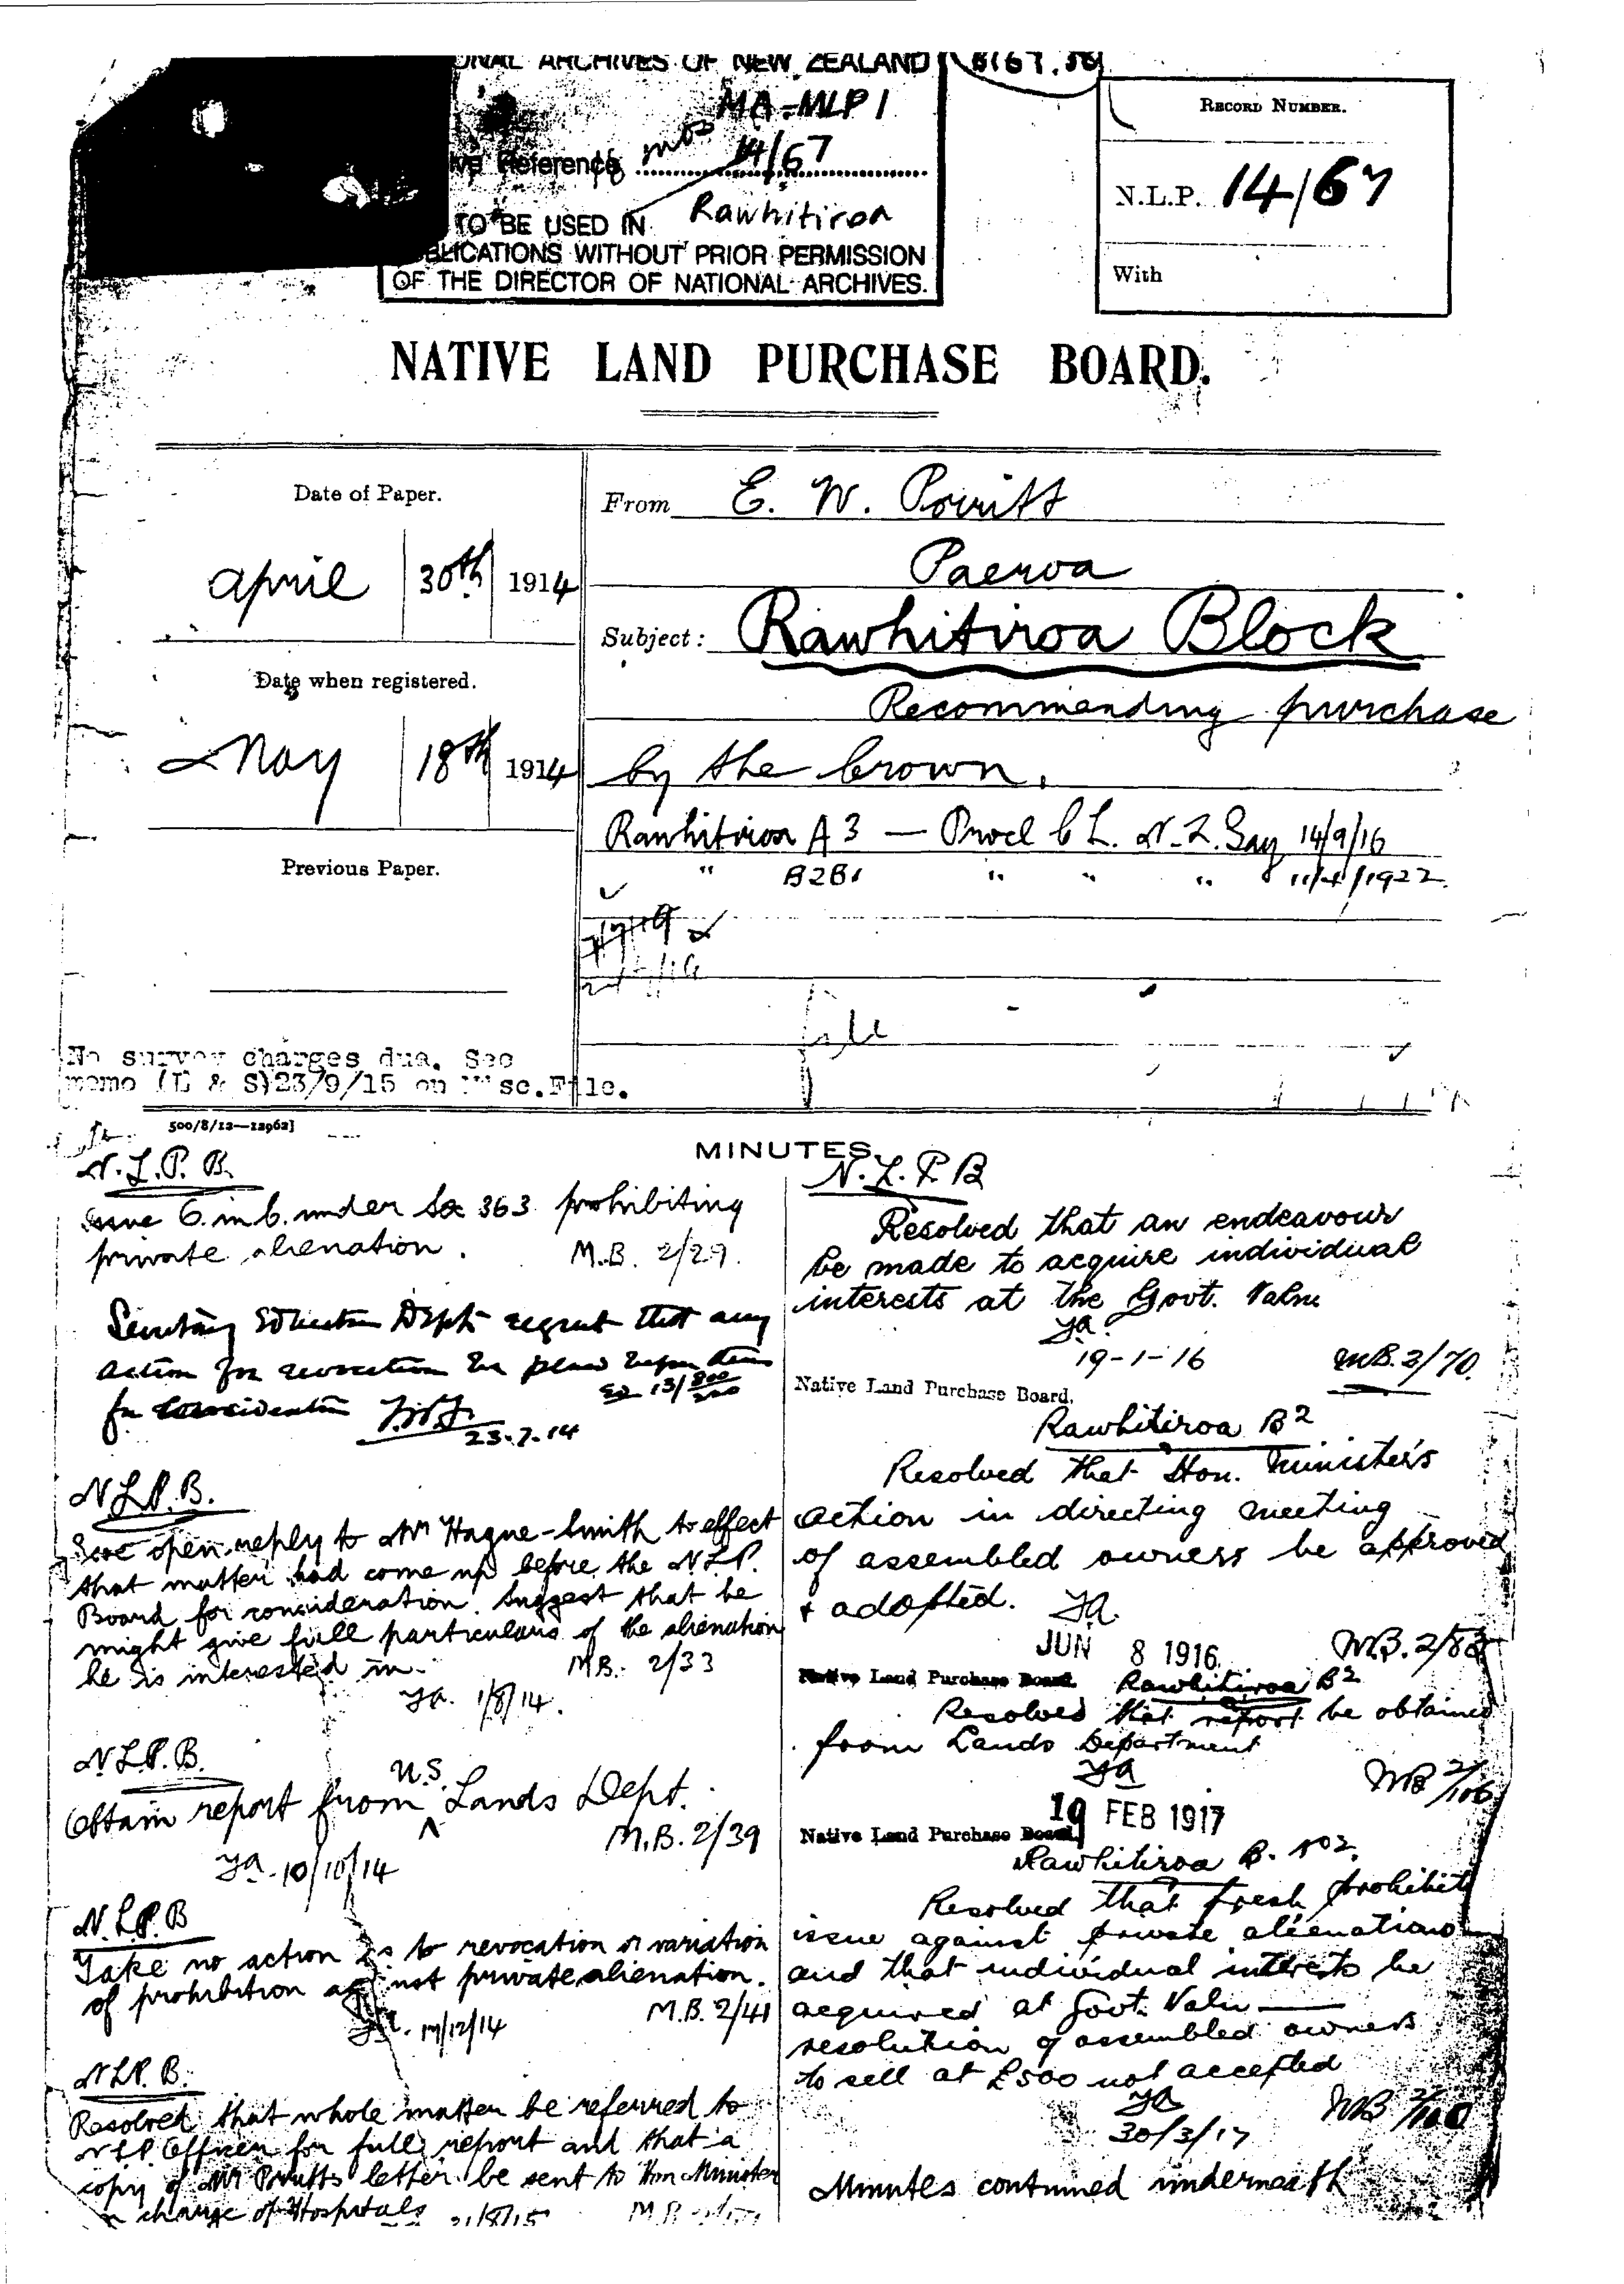 ONAL ARCHIVES OF NEW ZEALAND
MA-MLP 1
Reference 14/67
TO BE USED IN Rawhitiroa
BLICATIONS WITHOUT PRIOR PERMISSION
OF THE DIRECTOR OF NATIONAL ARCHIVES.
RECORD NUMBER.
N.L.P. 14/67
With
NATIVE LAND PURCHASE BOARD.
Date of Paper.
April 30th 1914
Date when registered.
May 18th 1914
Previous Paper.
From E. W. Porritt
Paeroa
Subject: Rawhitiroa Block
Recommending purchase
by the Crown.
Rawhitiroa A 3 — Procl C L. N.Z. Gaz 14/9/16
" B2B1 " " " 11/4/1922.
No survey charges due. See
memo (L & S) 23/9/15 on Misc. File.
500/8/12—12962]
MINUTES.
N.L.P.B.
Issue O. in C. under Sec 363 prohibiting
private alienation. M.B. 2/29.
action for revocation
for consideration
23.7.14
N.L.P.B.
open reply to Mr Hague-Smith to effect
that matter had come up before the N.L.P.
Board for consideration. Suggest that he
might give full particulars of the alienation
he is interested in. M.B. 2/33
1/8/14.
N.L.P.B.
Obtain report from U.S. Lands Dept.
M.B. 2/39
10/10/14
N.L.P.B
Take no action as to revocation or variation
of prohibition against private alienation.
M.B. 2/41
17/12/14
N.L.P.B.
Resolved that whole matter be referred to
N.L.P. Officer for full report and that a
copy of Mr Porritt's letter be sent to Hon Minister
in charge of Hospitals
N.L.P.B
Resolved that an endeavour
be made to acquire individual
interests at the Govt. Value
19-1-16 M.B. 2/70.
Native Land Purchase Board.
Rawhitiroa B2
Resolved that Hon. Minister's
action in directing meeting
of assembled owners be approved
+ adopted.
JUN 8 1916
Native Land Purchase Board. Rawhitiroa B2
Resolved that report be obtained
from Lands Department
MB 2/106
19 FEB 1917
Native Land Purchase Board.
Rawhitiroa B. No 2.
Resolved that fresh prohibit
issue against private alienation
and that individual interests be
acquired at Govt. Value —
resolution of assembled owners
to sell at £500 not accepted
30/3/17
Minutes continued underneath